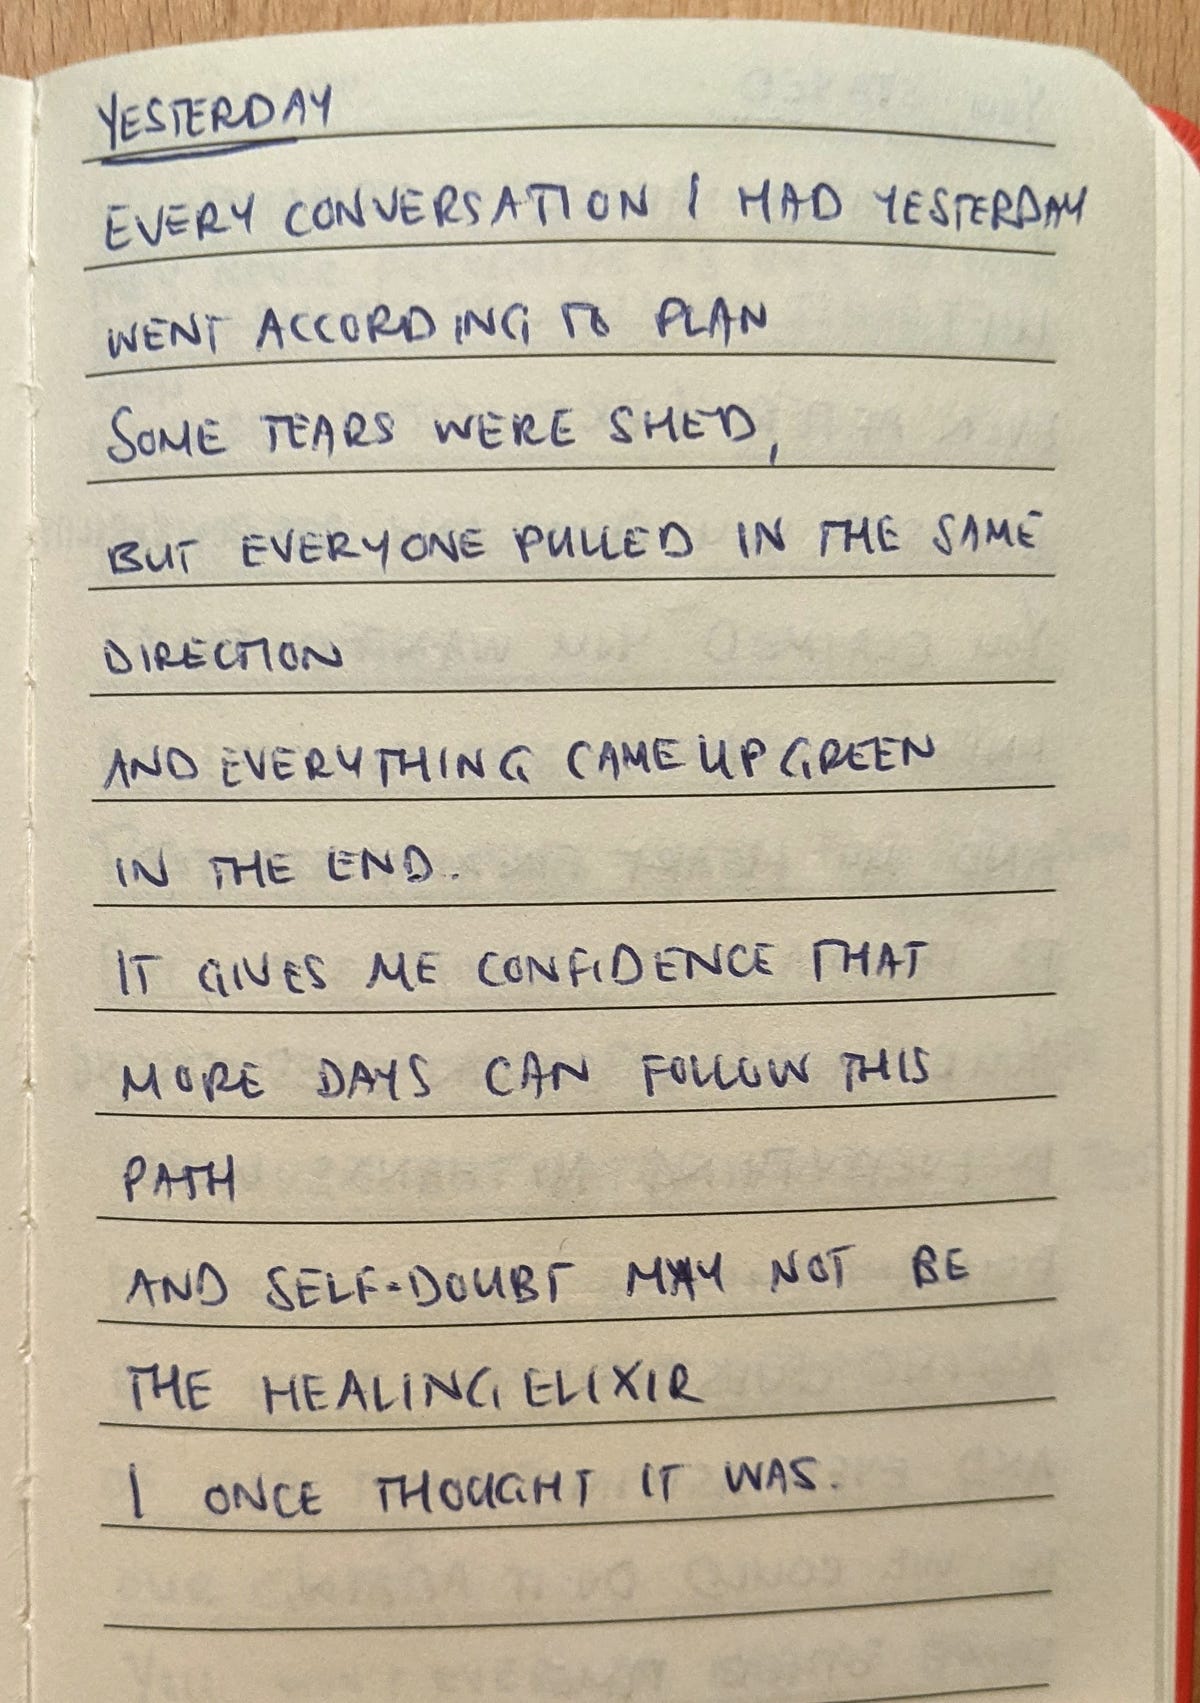 YESTERDAY
EVERY CONVERSATION I HAD YESTERDAY
WENT ACCORDING TO PLAN
SOME TEARS WERE SHED,
BUT EVERYONE PULLED IN THE SAME
DIRECTION
AND EVERYTHING CAME UP GREEN
IN THE END.
IT GIVES ME CONFIDENCE THAT
MORE DAYS CAN FOLLOW THIS
PATH
AND SELF-DOUBT MAY NOT BE
THE HEALING ELIXIR
I ONCE THOUGHT IT WAS.